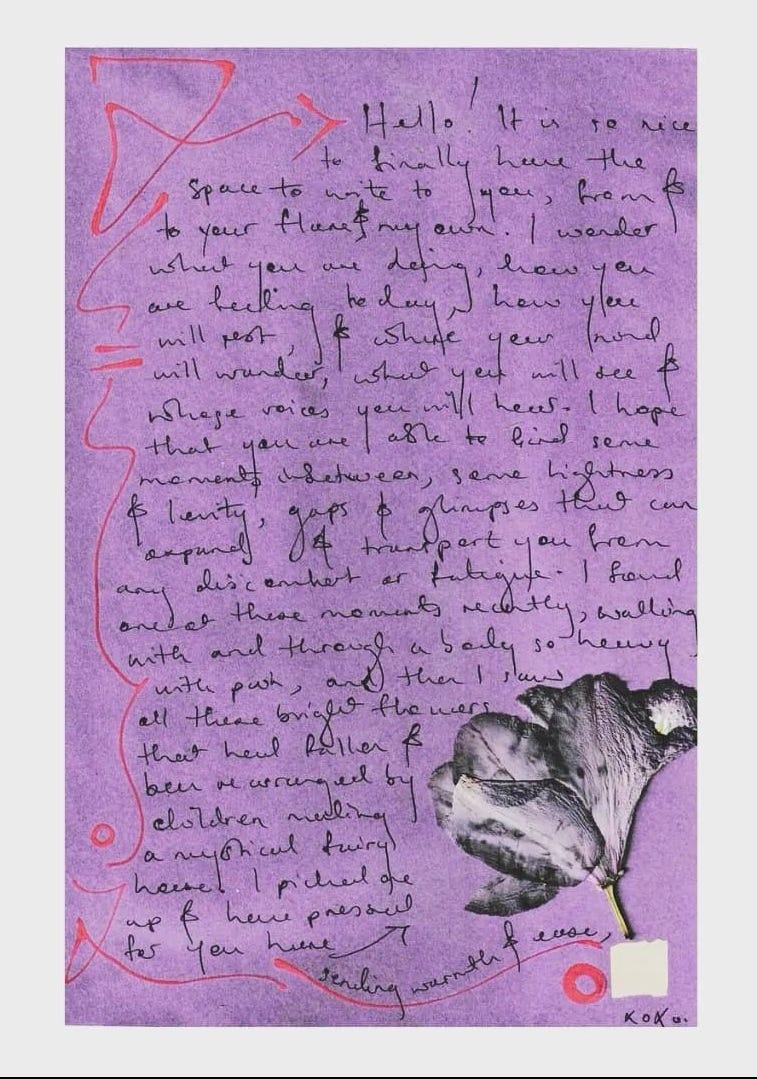 Hello! It is so nice
to finally have the
space to write to you, from &
to your home & my own. I wonder
what you are doing, how you
are feeling today, how you
will rest, & where your mind
will wander, what you will see &
whose voices you will hear. I hope
that you are able to find some
moments inbetween, some lightness
& levity, gaps & glimpses that can
expand & transport you from
any discomfort or fatigue. I found
one of these moments recently, walking
with and through a body so heavy
with pain, and then I saw
all these bright flowers
that had fallen &
been rearranged by
children making
a mystical fairy
house. I picked one
up & have pressed
for you here
sending warmth & ease,
xoxo.